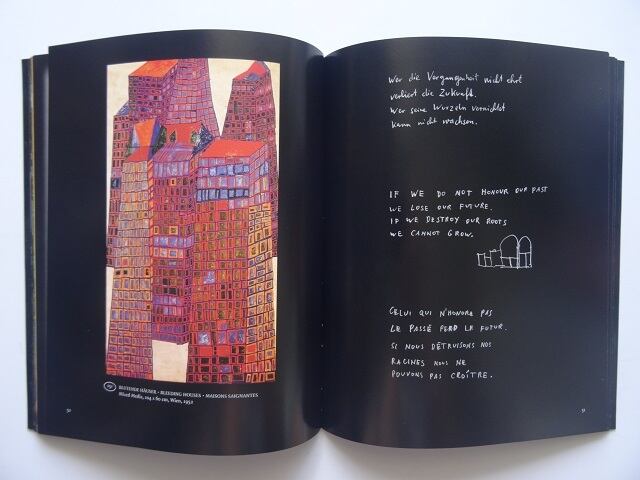 BLUTENDE HÄUSER • BLEEDING HOUSES • MAISONS SAIGNANTES
Mixed Media, 104 x 80 cm, Wien, 1952
50
Wer die Vergangenheit nicht ehrt
verliert die Zukunft.
Wer seine Wurzeln vernichtet
kann nicht wachsen.
IF WE DO NOT HONOUR OUR PAST
WE LOSE OUR FUTURE.
IF WE DESTROY OUR ROOTS
WE CANNOT GROW.
CELUI QUI N'HONORE PAS
LE PASSÉ PERD LE FUTUR.
SI NOUS DÉTRUISONS NOS
RACINES NOUS NE
POUVONS PAS CROÎTRE.
51